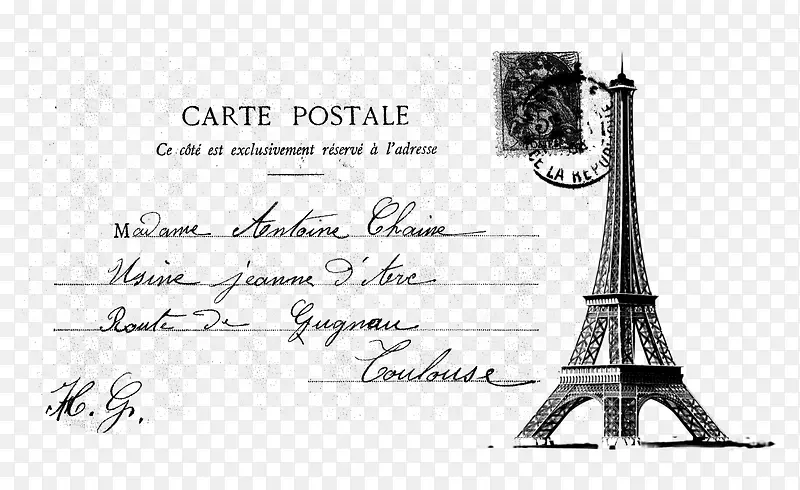 CARTE POSTALE
Ce côté est exclusivement réservé à l'adresse
Madame Antoine Chaine
Usine jeanne d'Arc
Route de Gugnau
Toulouse
H. G.
5
DE LA REPUBL